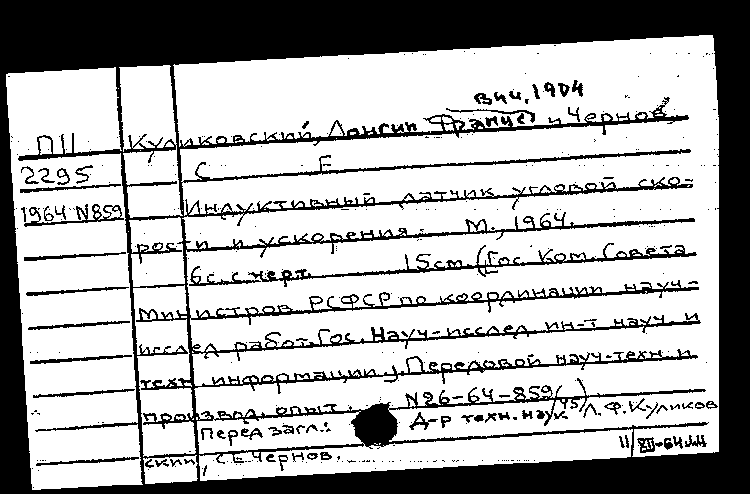 вич, 1904
П11 Куликовский, Лонгин Францев и Чернов,
2295 С Е
1964 N859 Индуктивный датчик угловой ско-
рости и ускорения. М., 1964.
6с. с черт. 15см. (Гос. Ком. Совета
Министров РСФСР по координации науч-
исслед. работ. Гос. Науч-исслед. ин-т науч. и
техн. информации). Передовой науч-техн. и
производ. опыт. N26-64-859/45)
Перед загл.: Д-р техн. наук Л.Ф. Куликов
ский, С Е Чернов.